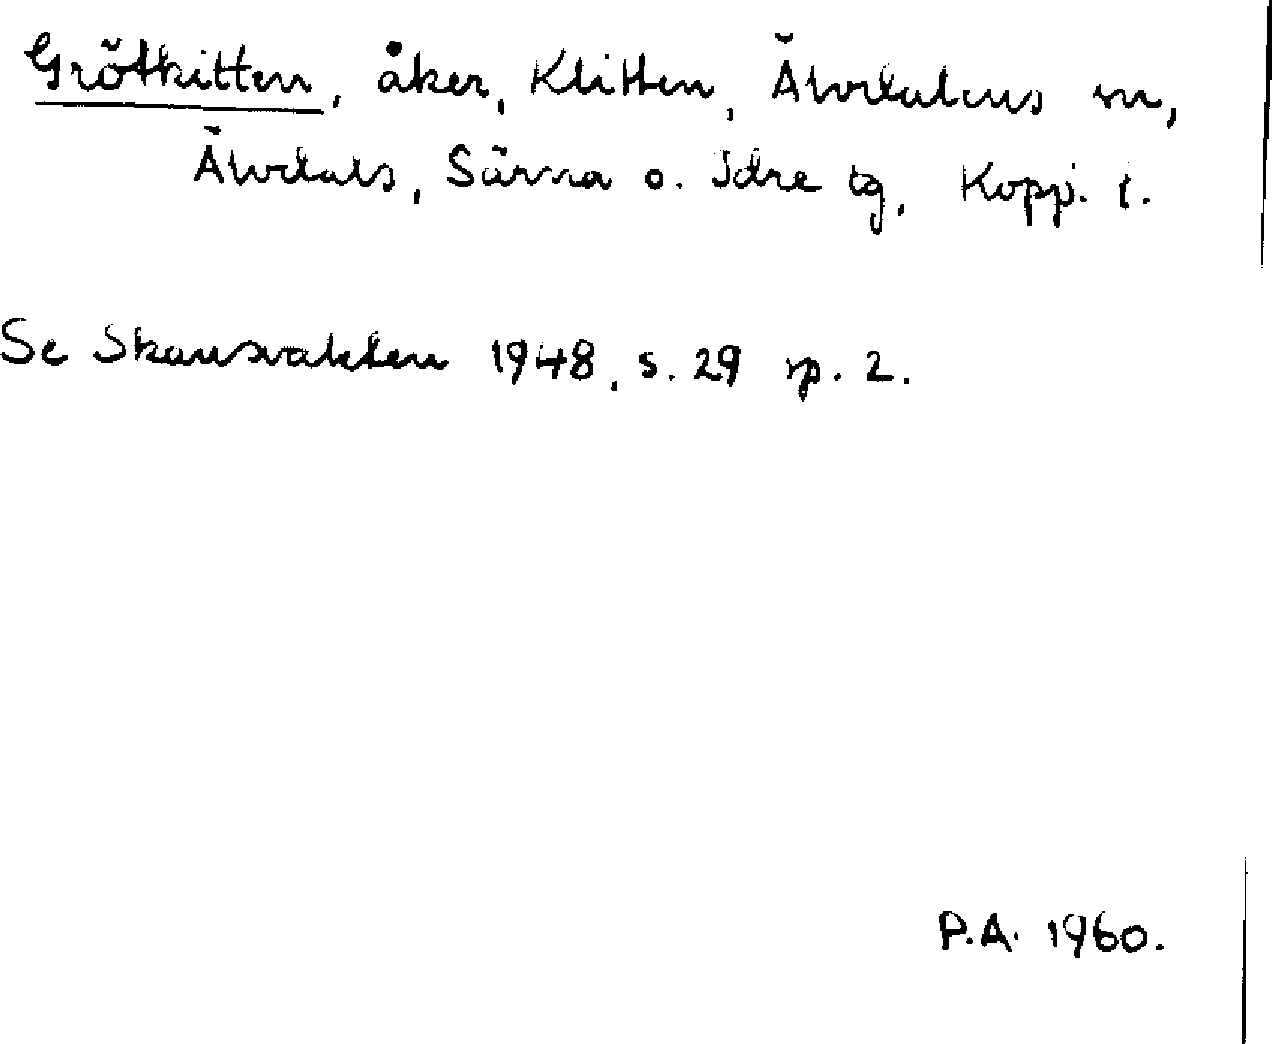 Grötkitten, åker, Klitten, Älvdalens sn,
Älvdals, Särna o. Idre tg, Kopp. l.
Se Skansvakten 1948, s. 29 sp. 2.
P.A. 1960.